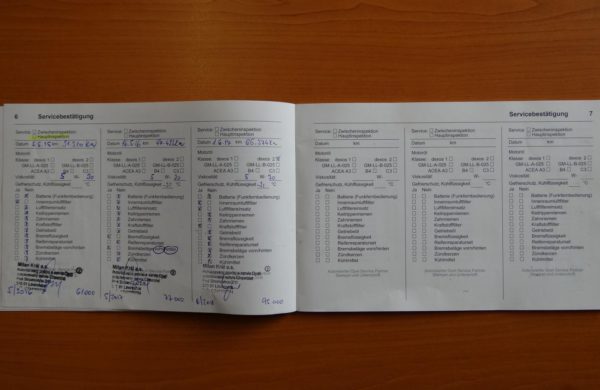 6 Servicebestätigung
Service: Zwischeninspektion
Hauptinspektion
Datum km
Motoröl
Klasse: dexos 1 dexos 2
GM-LL-A-025 GM-LL-B-025
ACEA A3 B4 C3
Viskosität 5 30
Gefrierschutz, Kühlflüssigkeit °C
Ja Nein
Batterie (Funkfernbedienung)
Innenraumluftfilter
Luftfiltereinsatz
Keilrippenriemen
Zahnriemen
Kraftstofffilter
Getriebeöl
Bremsflüssigkeit
Reifenreparaturset
Bremsbeläge vorn/hinten
Zündkerzen
Kühlmittel
Milan Král a.s.
5/2016 61000
Service: Zwischeninspektion
Hauptinspektion
Datum km
Motoröl
Klasse: dexos 1 dexos 2
GM-LL-A-025 GM-LL-B-025
ACEA A3 B4 C3
Viskosität 5 30
Gefrierschutz, Kühlflüssigkeit °C
Ja Nein
Batterie (Funkfernbedienung)
Innenraumluftfilter
Luftfiltereinsatz
Keilrippenriemen
Zahnriemen
Kraftstofffilter
Getriebeöl
Bremsflüssigkeit
Reifenreparaturset
Bremsbeläge vorn/hinten
Zündkerzen
Kühlmittel
Milan Král a.s.
5/2017 77000
Service: Zwischeninspektion
Hauptinspektion
Datum km
Motoröl
Klasse: dexos 1 dexos 2
GM-LL-A-025 GM-LL-B-025
ACEA A3 B4 C3
Viskosität 5 30
Gefrierschutz, Kühlflüssigkeit °C
Ja Nein
Batterie (Funkfernbedienung)
Innenraumluftfilter
Luftfiltereinsatz
Keilrippenriemen
Zahnriemen
Kraftstofffilter
Getriebeöl
Bremsflüssigkeit
Reifenreparaturset
Bremsbeläge vorn/hinten
Zündkerzen
Kühlmittel
Milan Král a.s.
95000
Servicebestätigung 7
Service: Zwischeninspektion
Hauptinspektion
Datum km
Motoröl
Klasse: dexos 1 dexos 2
GM-LL-A-025 GM-LL-B-025
ACEA A3 B4 C3
Viskosität W
Gefrierschutz, Kühlflüssigkeit °C
Ja Nein
Batterie (Funkfernbedienung)
Innenraumluftfilter
Luftfiltereinsatz
Keilrippenriemen
Zahnriemen
Kraftstofffilter
Getriebeöl
Bremsflüssigkeit
Reifenreparaturset
Bremsbeläge vorn/hinten
Zündkerzen
Kühlmittel
Autorisierter Opel Service Partner
(Stempel und Unterschrift)
Service: Zwischeninspektion
Hauptinspektion
Datum km
Motoröl
Klasse: dexos 1 dexos 2
GM-LL-A-025 GM-LL-B-025
ACEA A3 B4 C3
Viskosität W
Gefrierschutz, Kühlflüssigkeit °C
Ja Nein
Batterie (Funkfernbedienung)
Innenraumluftfilter
Luftfiltereinsatz
Keilrippenriemen
Zahnriemen
Kraftstofffilter
Getriebeöl
Bremsflüssigkeit
Reifenreparaturset
Bremsbeläge vorn/hinten
Zündkerzen
Kühlmittel
Autorisierter Opel Service Partner
(Stempel und Unterschrift)
Service: Zwischeninspektion
Hauptinspektion
Datum km
Motoröl
Klasse: dexos 1 dexos 2
GM-LL-A-025 GM-LL-B-025
ACEA A3 B4 C3
Viskosität W
Gefrierschutz, Kühlflüssigkeit °C
Ja Nein
Batterie (Funkfernbedienung)
Innenraumluftfilter
Luftfiltereinsatz
Keilrippenriemen
Zahnriemen
Kraftstofffilter
Getriebeöl
Bremsflüssigkeit
Reifenreparaturset
Bremsbeläge vorn/hinten
Zündkerzen
Kühlmittel
Autorisierter Opel Service Partner
(Stempel und Unterschrift)